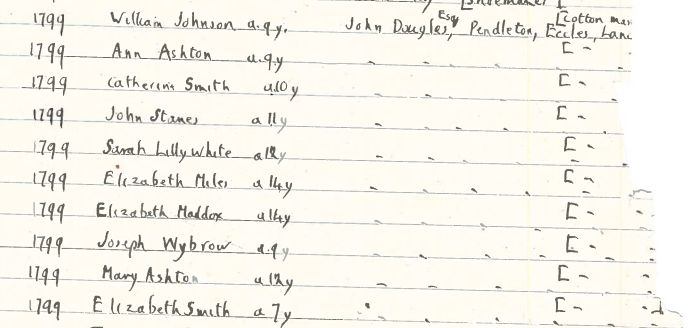 [Shoemaker]
1799 William Johnson a.9y. John Douglas, Esq Pendleton, Eccles, Lanc [Cotton man
1799 Ann Ashton a.9y - - - - [ -
1799 Catherine Smith a10y - - - - [ -
1799 John Stanes a 11y - - - - [ -
1799 Sarah Lillywhite a12y - - - - [ -
1799 Elizabeth Miles a 14y - - - - [ -
1799 Elizabeth Maddox a14y - - - - [ -
1799 Joseph Wybrow a.9y - - - - [ -
1799 Mary Ashton a12y - - - - [ -
1799 Elizabeth Smith a 7y - - - - [ -